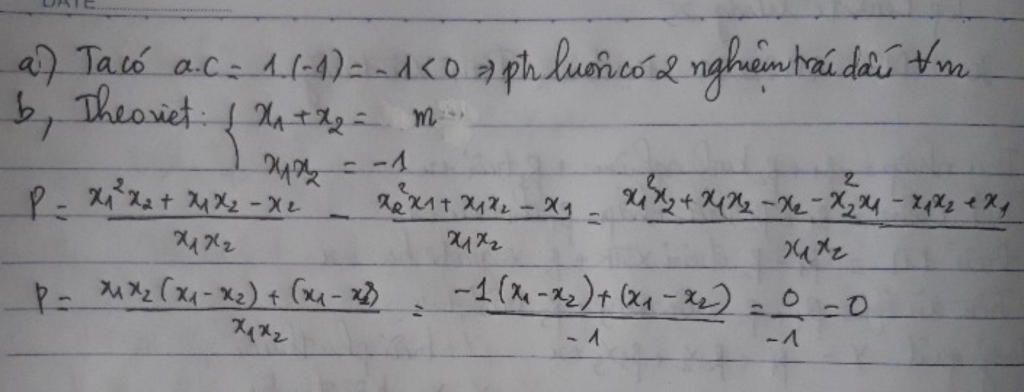 DATE
a) Ta có a.c = 1.(-1) = -1 < 0 => pt luôn có 2 nghiệm trái dấu ∀m
b, Theo viet: { x₁ + x₂ = m
x₁x₂ = -1
P = (x₁²x₂ + x₁x₂ - x₂)/(x₁x₂) - (x₂²x₁ + x₁x₂ - x₁)/(x₁x₂) = (x₁²x₂ + x₁x₂ - x₂ - x₂²x₁ - x₁x₂ + x₁)/(x₁x₂)
P = (x₁x₂(x₁ - x₂) + (x₁ - x₂))/(x₁x₂) = (-1(x₁ - x₂) + (x₁ - x₂))/(-1) = 0/(-1) = 0